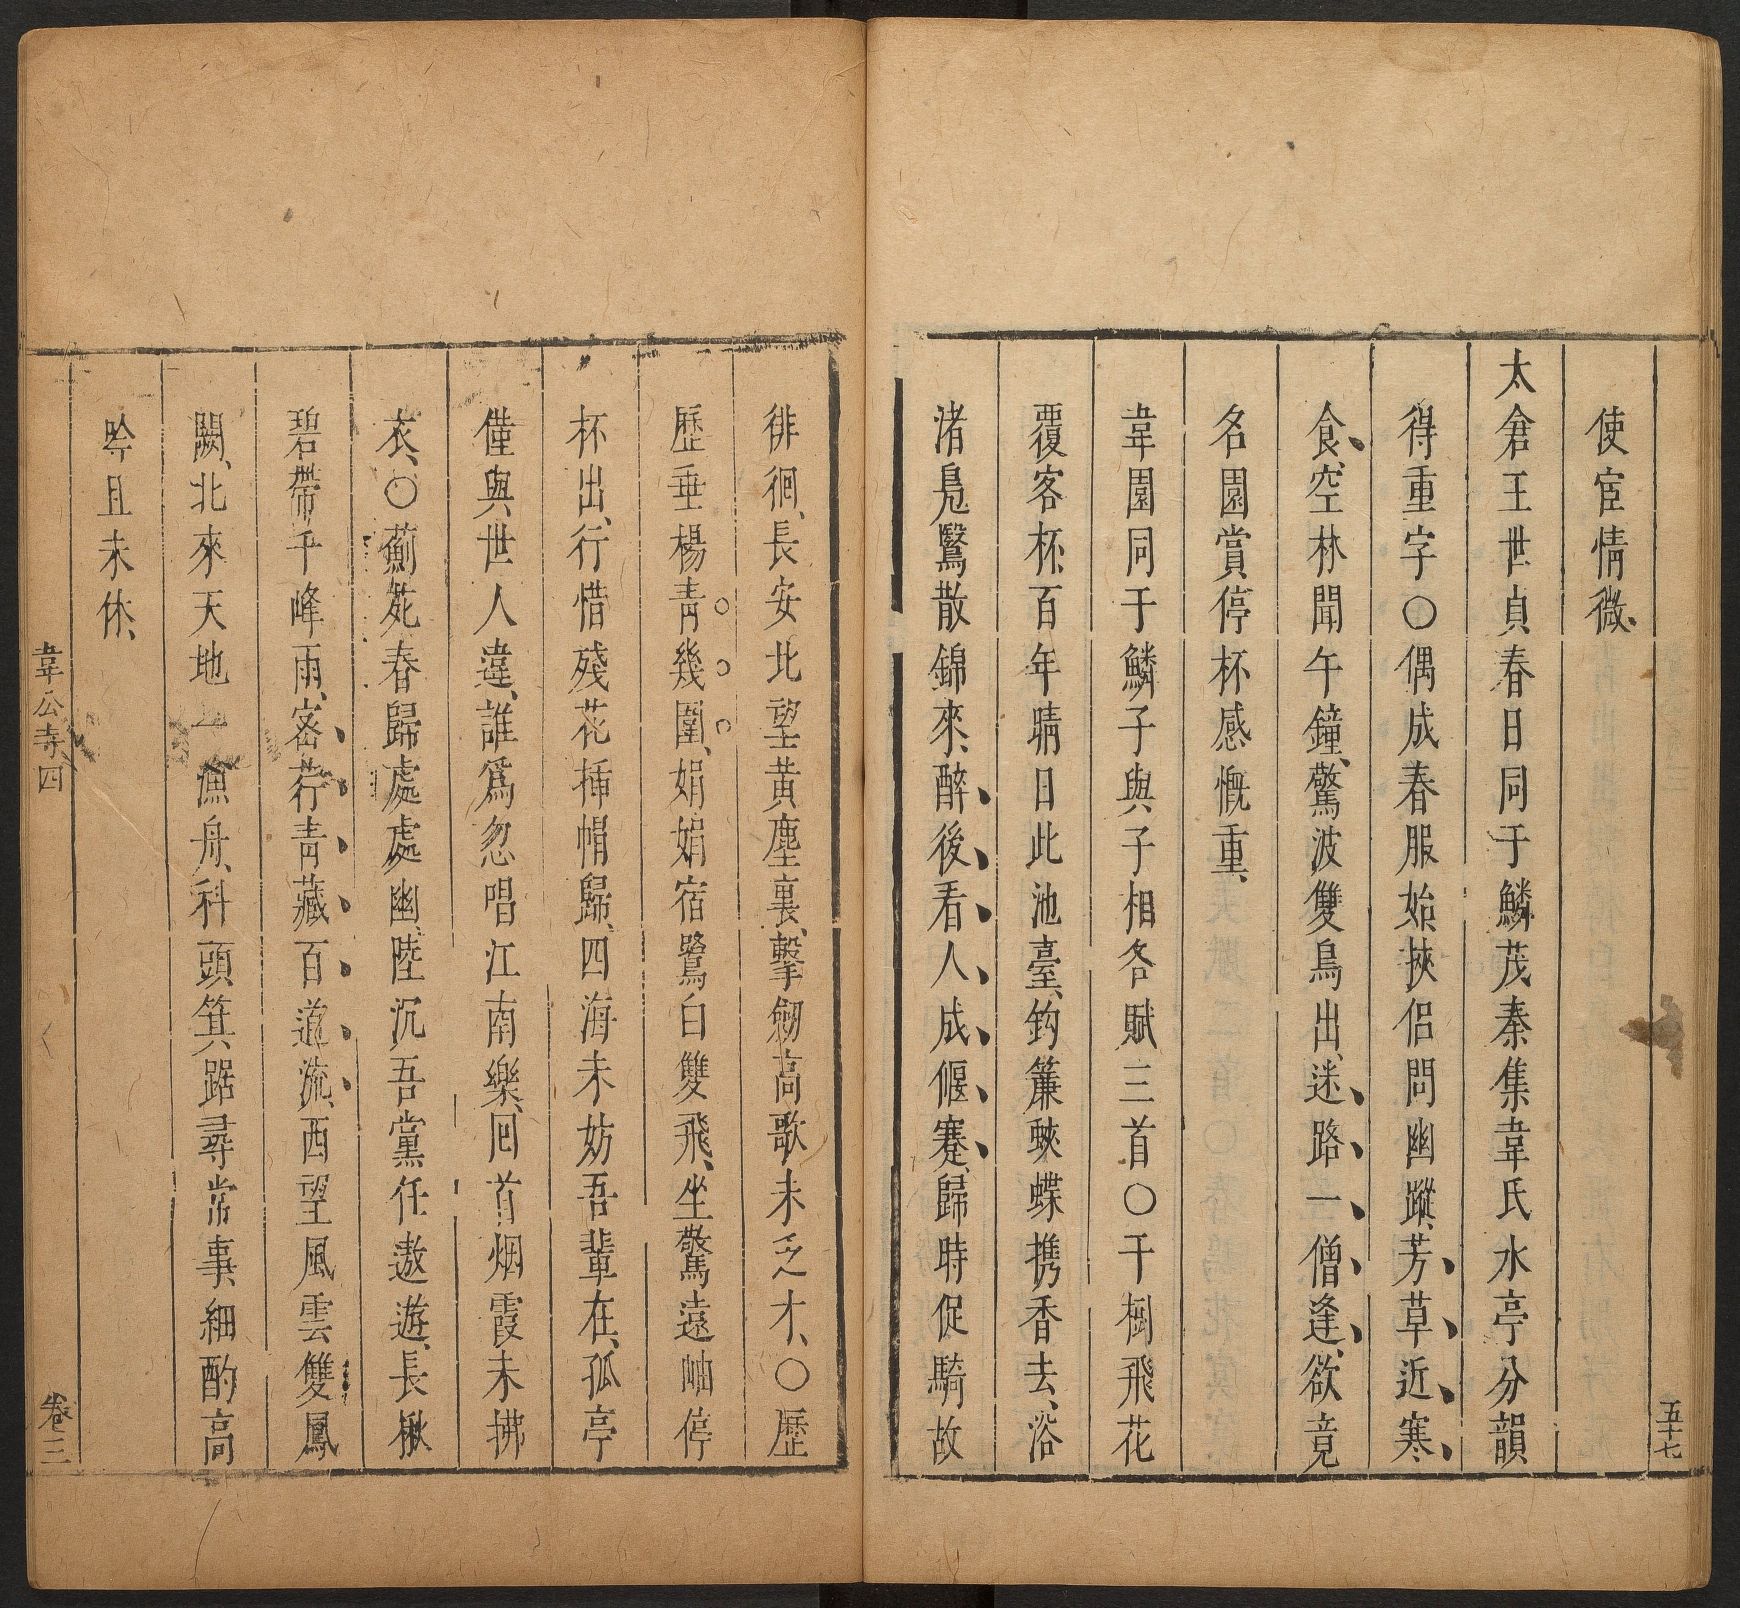 使宦情微、
太倉王世貞春日同于鱗茂秦集韋氏水亭分韻
得重字○偶成春服始挾侶問幽蹤、芳草近寒
食、空林聞午鐘、驚波雙鳥出、迷路一僧逢、欲竟
名園賞、停杯感慨重、
韋園同于鱗子與子相各賦三首○千樹飛花
覆客杯、百年晴日此池臺、鈎簾蛺蝶携香去、浴
渚鳧鷖散錦來、醉後看人成偃蹇、歸時促騎故
五十七
徘徊、長安北望黃塵裏、擊劒高歌未乏才、○歷
歷垂楊青幾圍、娟娟宿鷺白雙飛、坐驚遠岫停
杯出、行惜殘花揷帽歸、四海未妨吾輩在、孤亭
僮與世人違、誰爲忽唱江南樂、回首烟霞未拂
衣、○薊苑春歸處處幽、陸沉吾黨任遨遊、長楸
碧帶千峰雨、密荇青藏百道流、西望風雲雙鳳
闕、北來天地一漁舟、科頭箕踞尋常事、細酌高
吟且未休、
韋公寺四
卷三